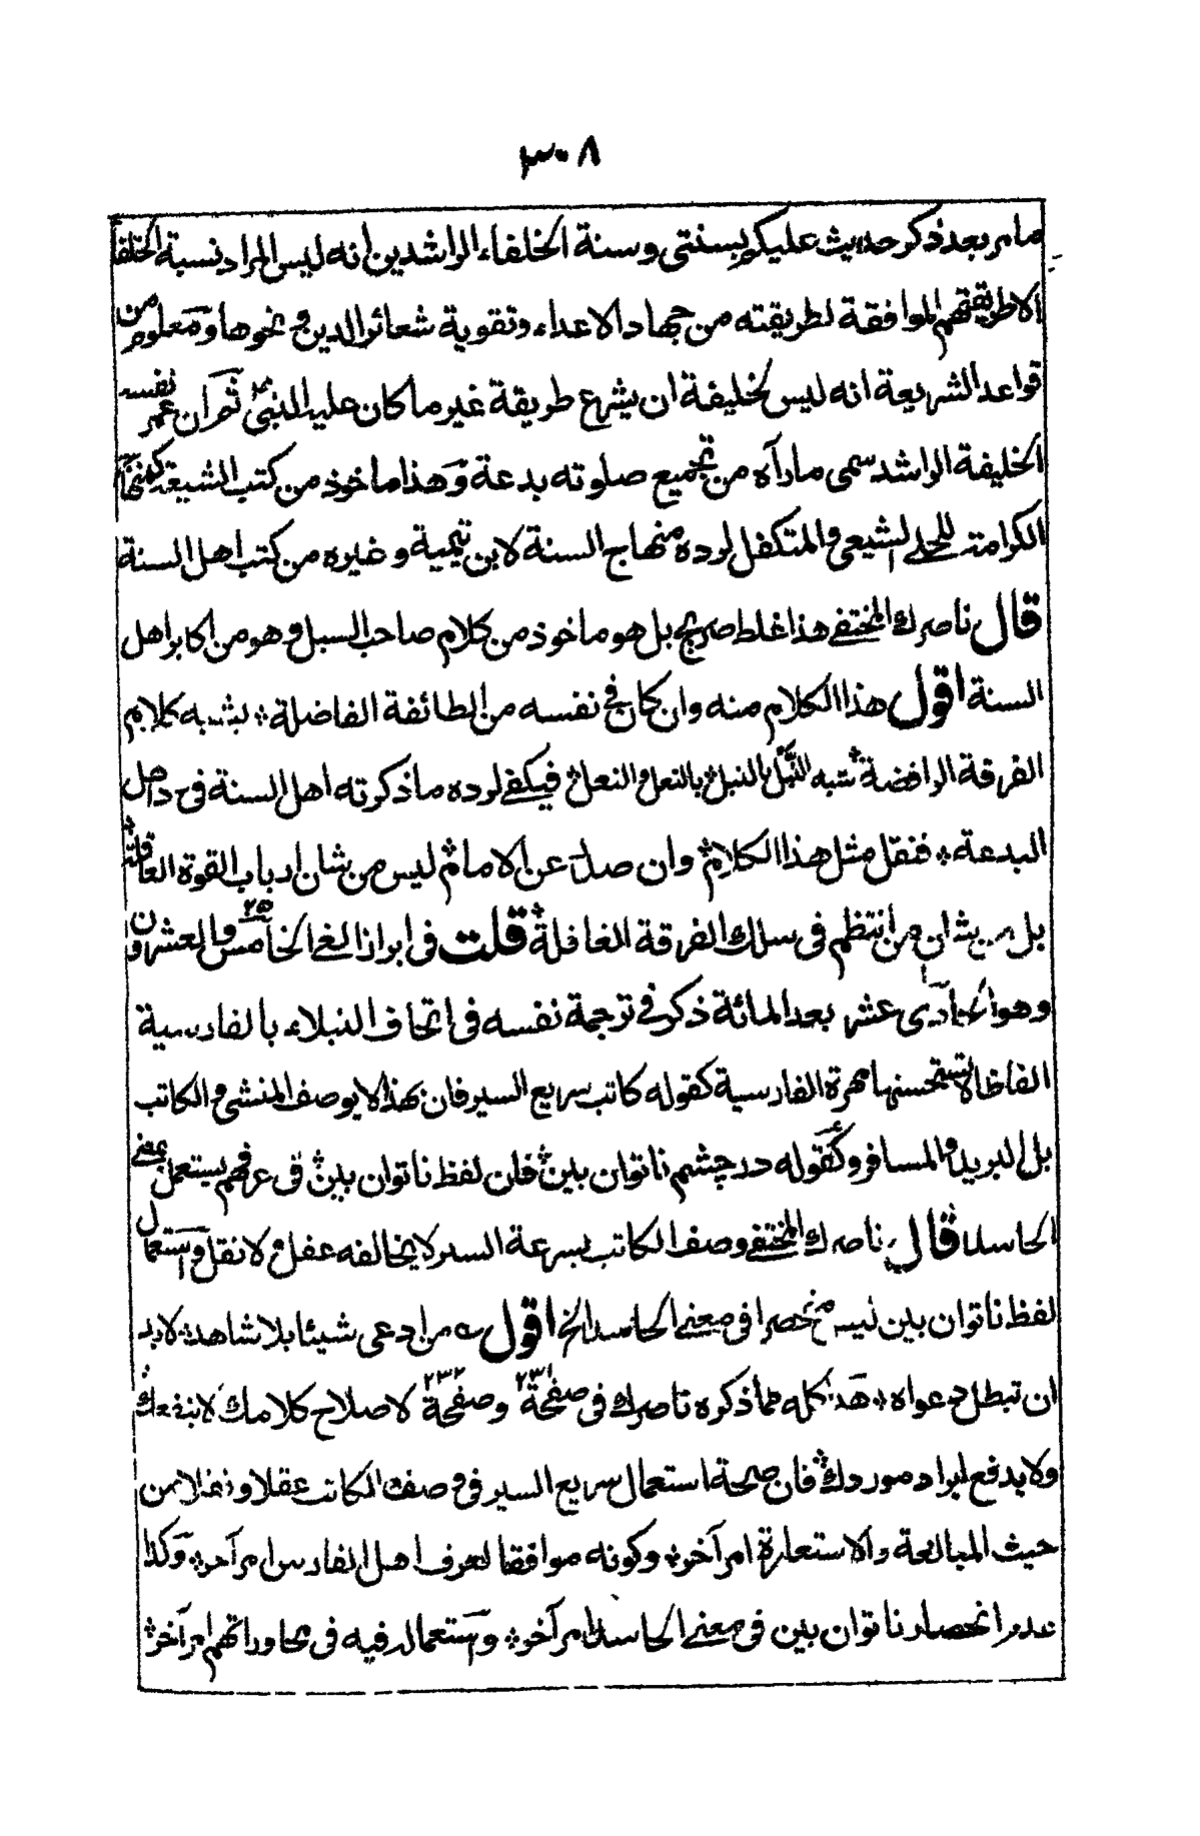 ٣٠٨
مامر بعد ذكر حديث عليكم بسنتى وسنة الخلفاء الراشدين انه ليس المراد نسبة الخلفا
الا طريقتهم الموافقة لطريقته من جهاد الاعداء وتقوية شعائر الدين ونحوها ومعلوم من
قواعد الشريعة انه ليس لخليفة ان يشرع طريقة غير ما كان عليه النبى ثم ان عمر نفسه
الخليفة الراشد سمى ما رآه من تجميع صلوته بدعة وهذا ماخوذ من كتب الشيعة كمنهاج
الكرامة للحلى الشيعى والمتكفل لرده منهاج السنة لابن تيمية وغيره من كتب اهل السنة
قال ناصرك المختفى هذا غلط صريح بل هو ماخوذ من كلام صاحب السبل وهو من اكابر اهل
السنة اقول هذا الكلام منه وان كان فى نفسه من الطائفة الفاضلة يشبه كلام
الفرقة الرافضة شبه النبل بالنبل والنعل بالنعل فيكفى لرده ما ذكرته اهل السنة فى رد اهل
البدعة فنقل مثل هذا الكلام وان صدر عن الامام ليس من شان ارباب القوة العاقلة
بل من شان من انتظم فى سلك الفرقة الغافلة قلت فى ابراز الغى الخامس والعشرون ٢٥
وهو الحادى عشر بعد المائة ذكر فى ترجمة نفسه فى اتحاف النبلاء بالفارسية
الفاظا لا تستحسنها مهرة الفارسية كقوله كاتب سريع السير فان بهذا لا يوصف المنشى والكاتب
بل البريد والمسافر وكقوله در چشم ناتوان بين فان لفظ ناتوان بين فى عرفهم يستعمل بمعنى
الحاسد قال ناصرك المختفى وصف الكاتب بسرعة السير لا يخالفه عقل ولا نقل واستعمال
لفظ ناتوان بين ليس منحصرا فى معنى الحاسد الخ اقول من ادعى شيئا بلا شاهد لا بد
ان تبطل دعواه هذا كله مما ذكره ناصرك فى صفحة ٢٣١ وصفحة ٢٣٢ لاصلاح كلامك لا ينفعك
ولا يدفع ايراد موردك فان صحة استعمال سريع السير فى وصف الكاتب عقلا ونقلا من
حيث المبالغة والاستعارة امر آخر وكونه موافقا لعرف اهل الفارس امر آخر وكذا
عدم انحصار ناتوان بين فى معنى الحاسد امر آخر واستعماله فيه فى محاوراتهم امر آخر